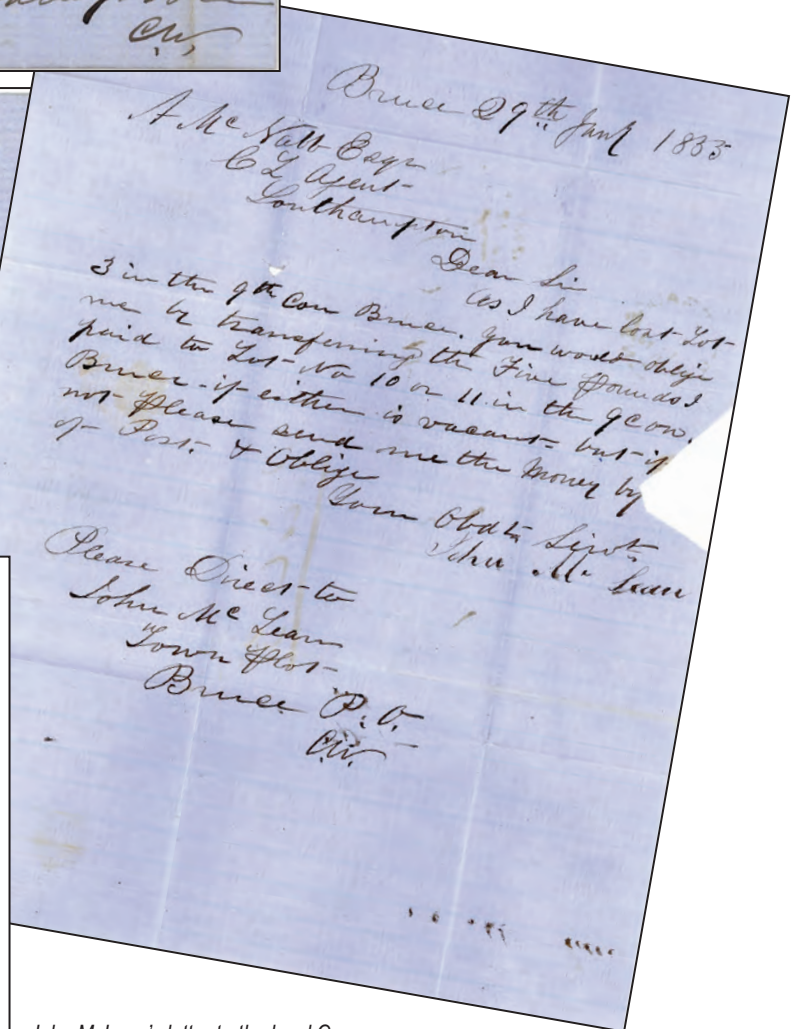 C.W.
Bruce 29th Jany 1855
A. Mc Nabb Esqr
C L Agent
Southampton
Dear Sir
As I have lost Lot
3 in the 9th Con Bruce. you would oblige
me by transferring the Five Pounds I
paid to Lot No 10 or 11 in the 9 con.
Bruce if either is vacant but if
not Please send me the Money by
Post. & Oblige
Your Obdt Servt
John Mc Lean
Please Direct to
John Mc Lean
Town Plot
Bruce P.O.
C.W.
John McLean's letter to the local C